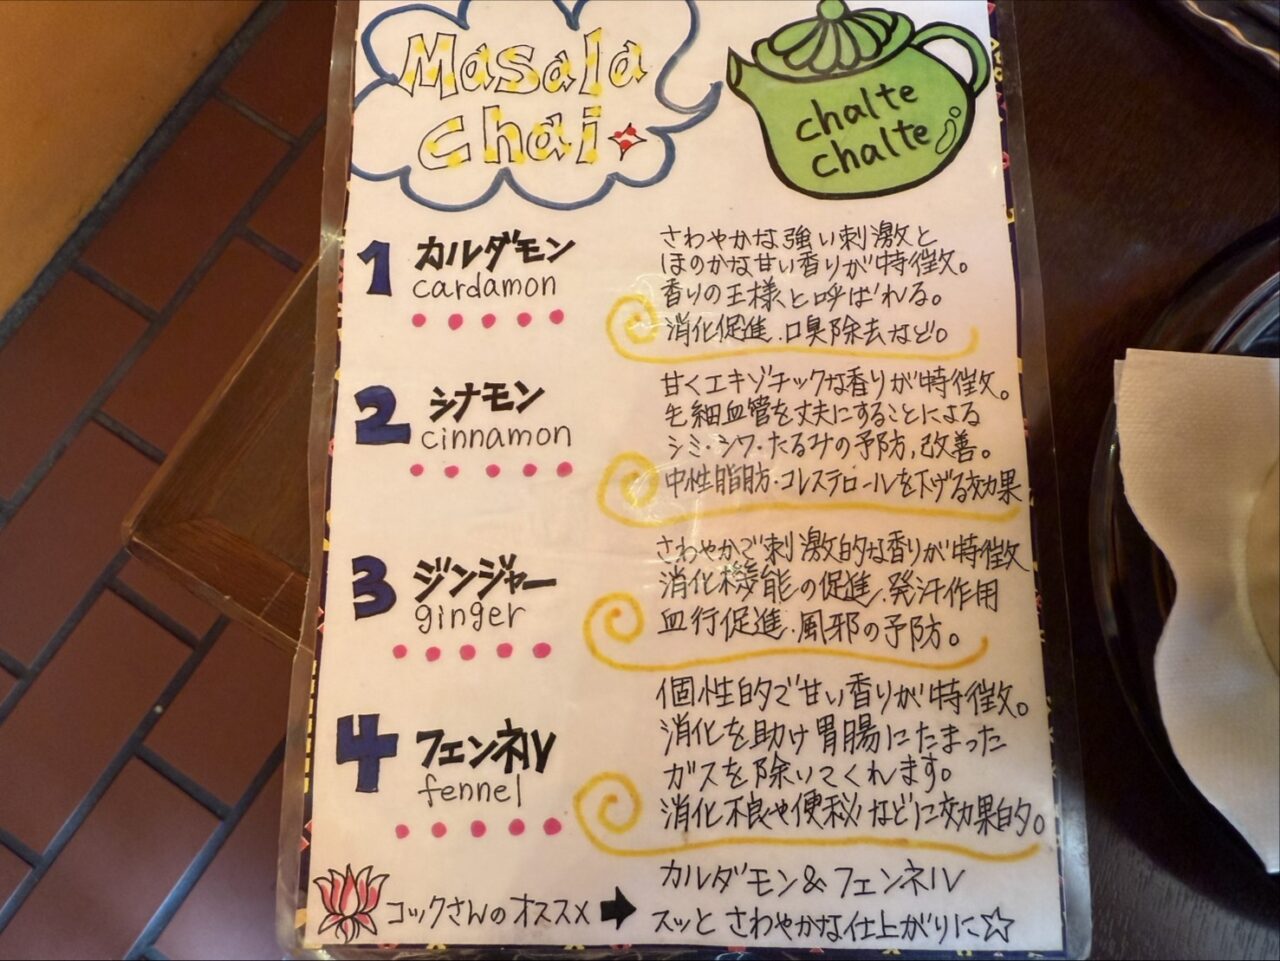 Masala
chai
chalte
chalte
1 カルダモン
cardamon
さわやかな強い刺激と
ほのかな甘い香りが特徴。
香りの王様と呼ばれる。
消化促進、口臭除去など。
2 シナモン
cinnamon
甘くエキゾチックな香りが特徴。
毛細血管を丈夫にすることによる
シミ・シワ・たるみの予防、改善。
中性脂肪・コレステロールを下げる効果
3 ジンジャー
ginger
さわやかで刺激的な香りが特徴
消化機能の促進、発汗作用
血行促進、風邪の予防。
4 フェンネル
fennel
個性的で甘い香りが特徴。
消化を助け胃腸にたまった
ガスを除いてくれます。
消化不良や便秘などに効果的。
コックさんのオススメ➡カルダモン&フェンネル
スッとさわやかな仕上がりに☆